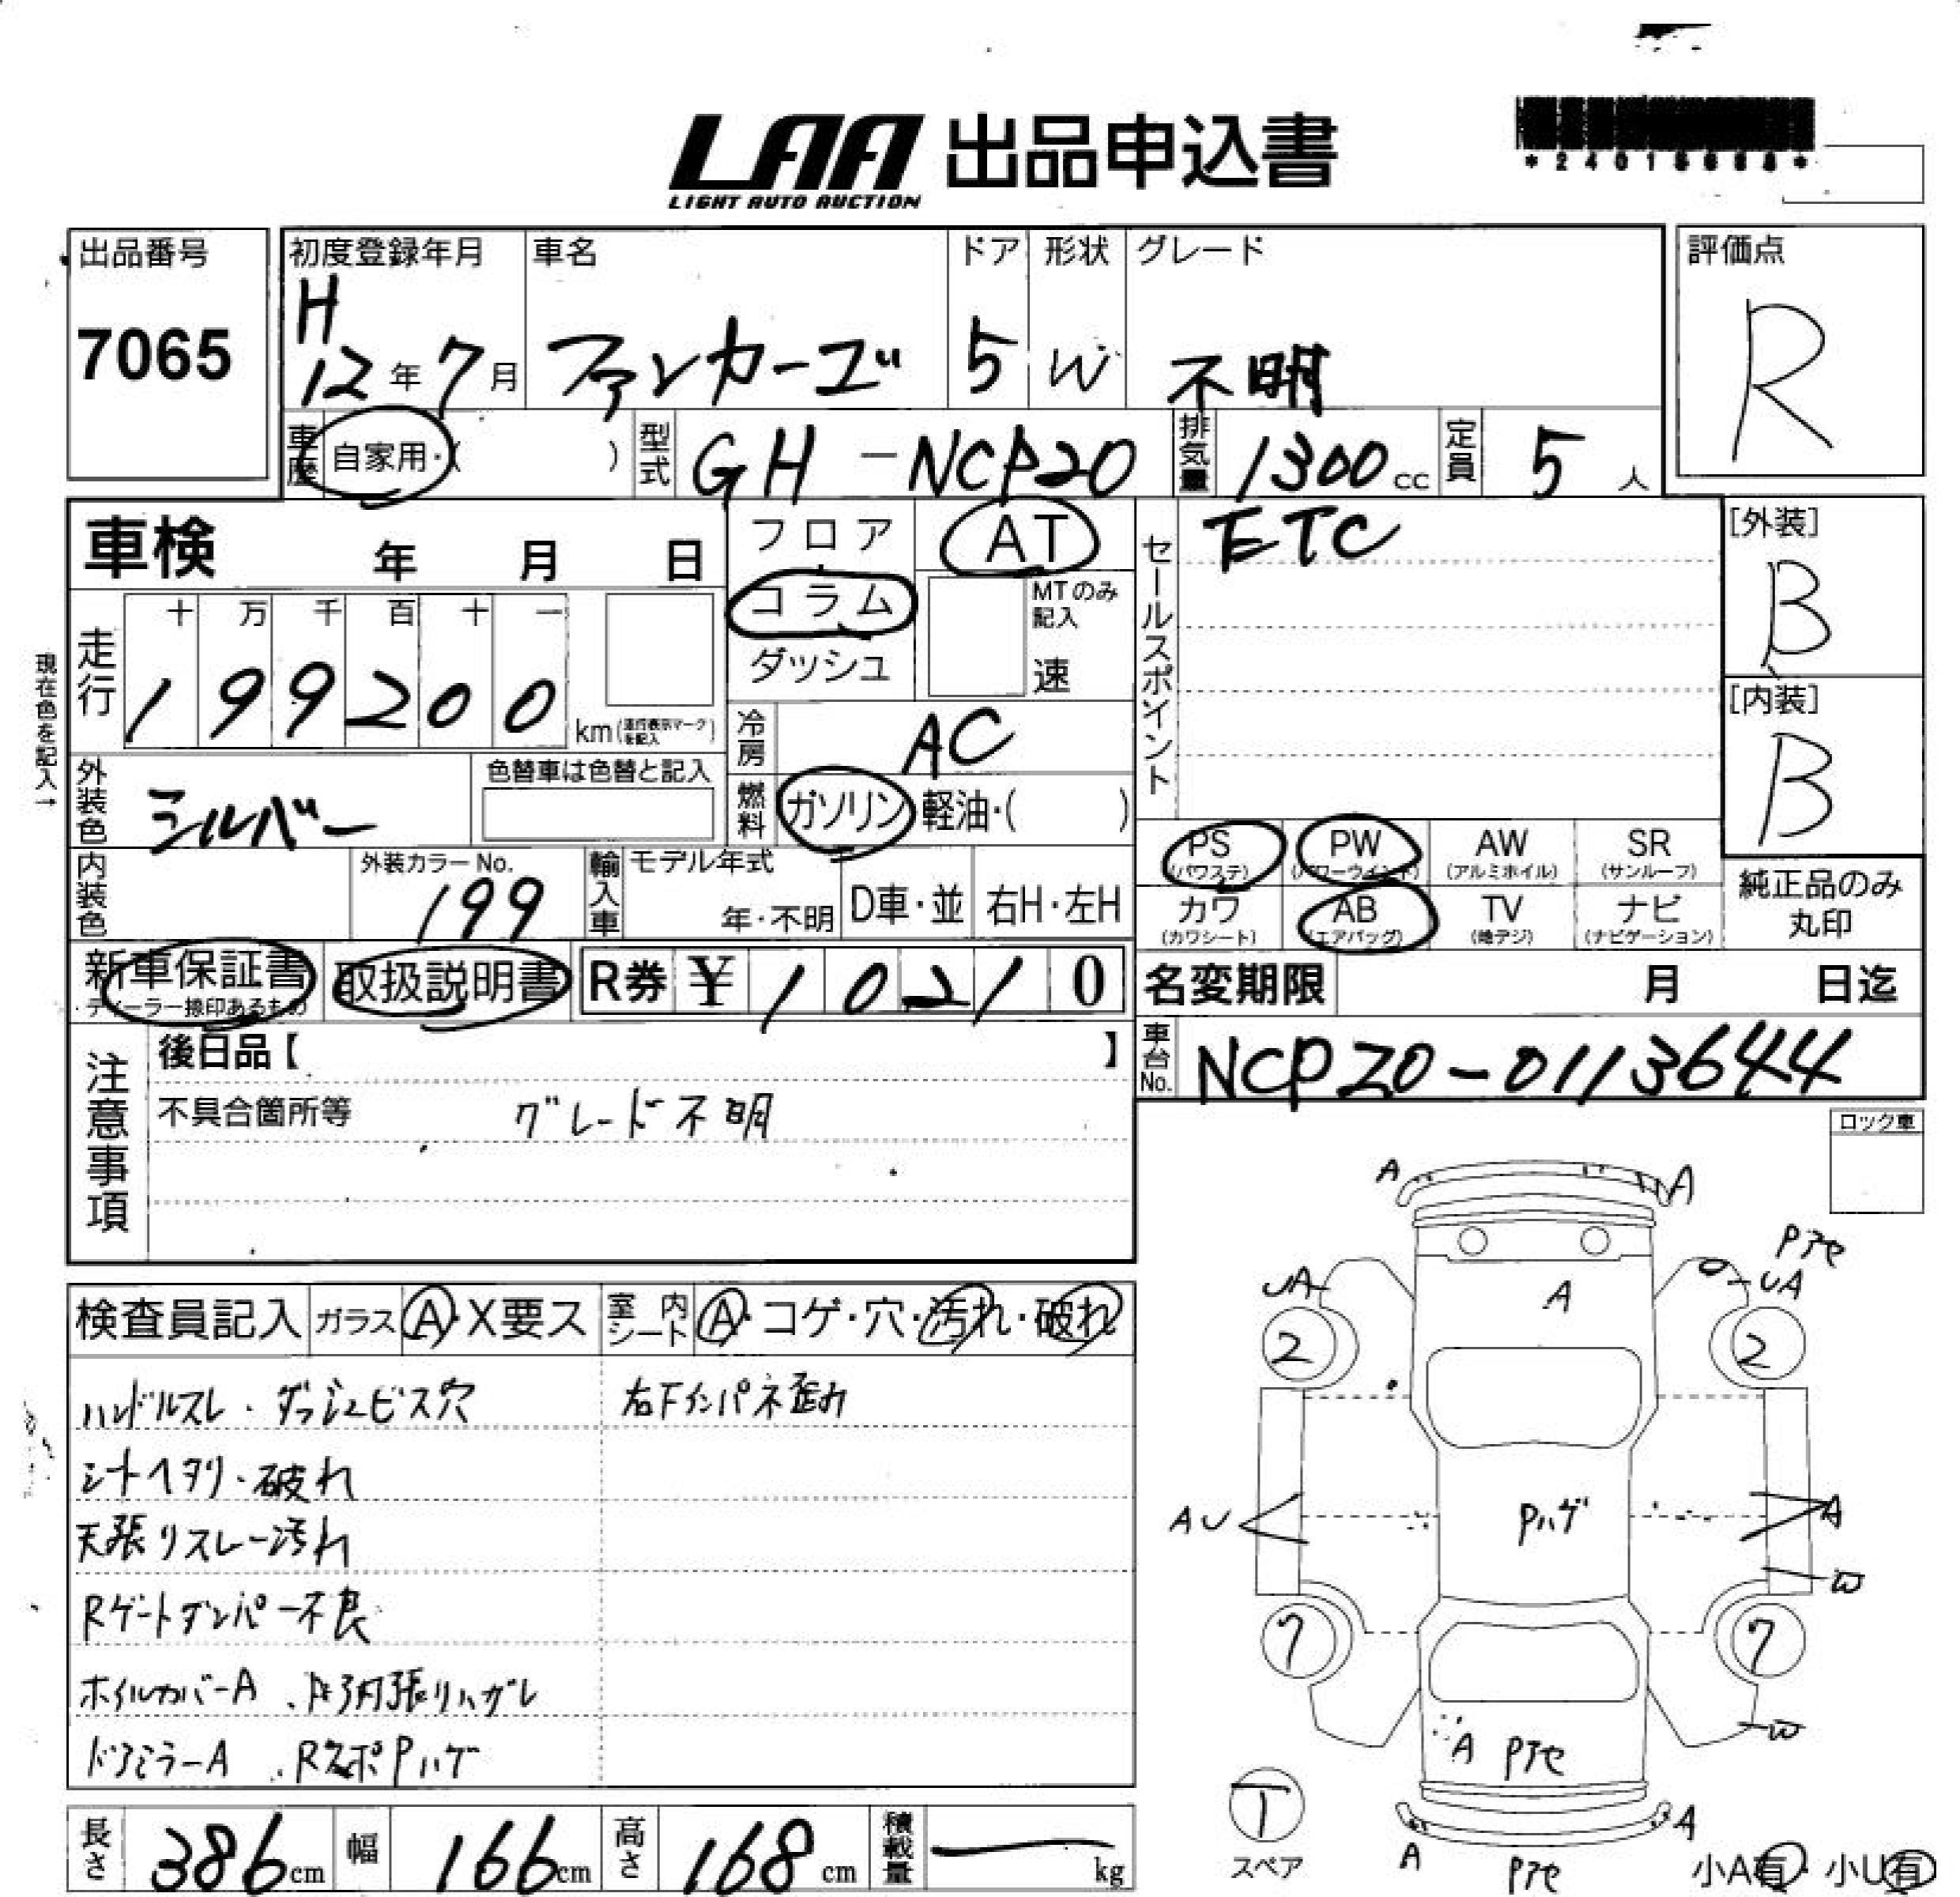 LAA 出品申込書
LIGHT AUTO AUCTION
出品番号
7065
初度登録年月
H
12年7月
車名
ファンカーゴ
ドア
5
形状
W
グレード
不明
評価点
R
車歴 自家用・( )
型式 GH-NCP20
排気量 1300cc
定員 5人
車検 年 月 日
フロア
コラム
ダッシュ
AT
MTのみ
記入
速
セールスポイント
ETC
[外装]
B
[内装]
B
現在色を記入→
走行
十 万 千 百 十 一
1 9 9 2 0 0 km
冷房 AC
外装色 シルバー
色替車は色替と記入
燃料 ガソリン 軽油・( )
PS
(パワステ)
PW
(パワーウインド)
AW
(アルミホイル)
SR
(サンルーフ)
カワ
(カワシート)
AB
(エアバッグ)
TV
(地デジ)
ナビ
(ナビゲーション)
純正品のみ
丸印
内装色
外装カラーNo.
199
輸入車
モデル年式
年・不明
D車・並
右H・左H
新車保証書
取扱説明書
R券 ¥ 1 0 2 1 0
名変期限 月 日迄
車台No. NCP20-0113644
注意事項
後日品【 】
不具合箇所等 グレード不明
ロック車
検査員記入 ガラス A・X要ス
室内シート A・コゲ・穴・汚れ・破れ
ハンドルスレ・ダッシュビス穴
右下インパネ歪み
シートヘタリ・破れ
天張リスレー汚れ
Rゲートダンパー不良
ホイルカバーA
ドアミラーA .RスポPハゲ
A
A
Pアセ
UA
UA
A
2
2
AU
Pハゲ
A
W
7
7
W
A Pアセ
T
スペア
A
A
Pアセ
小A有・小U有
長さ 386cm
幅 166cm
高さ 168cm
積載量 — kg